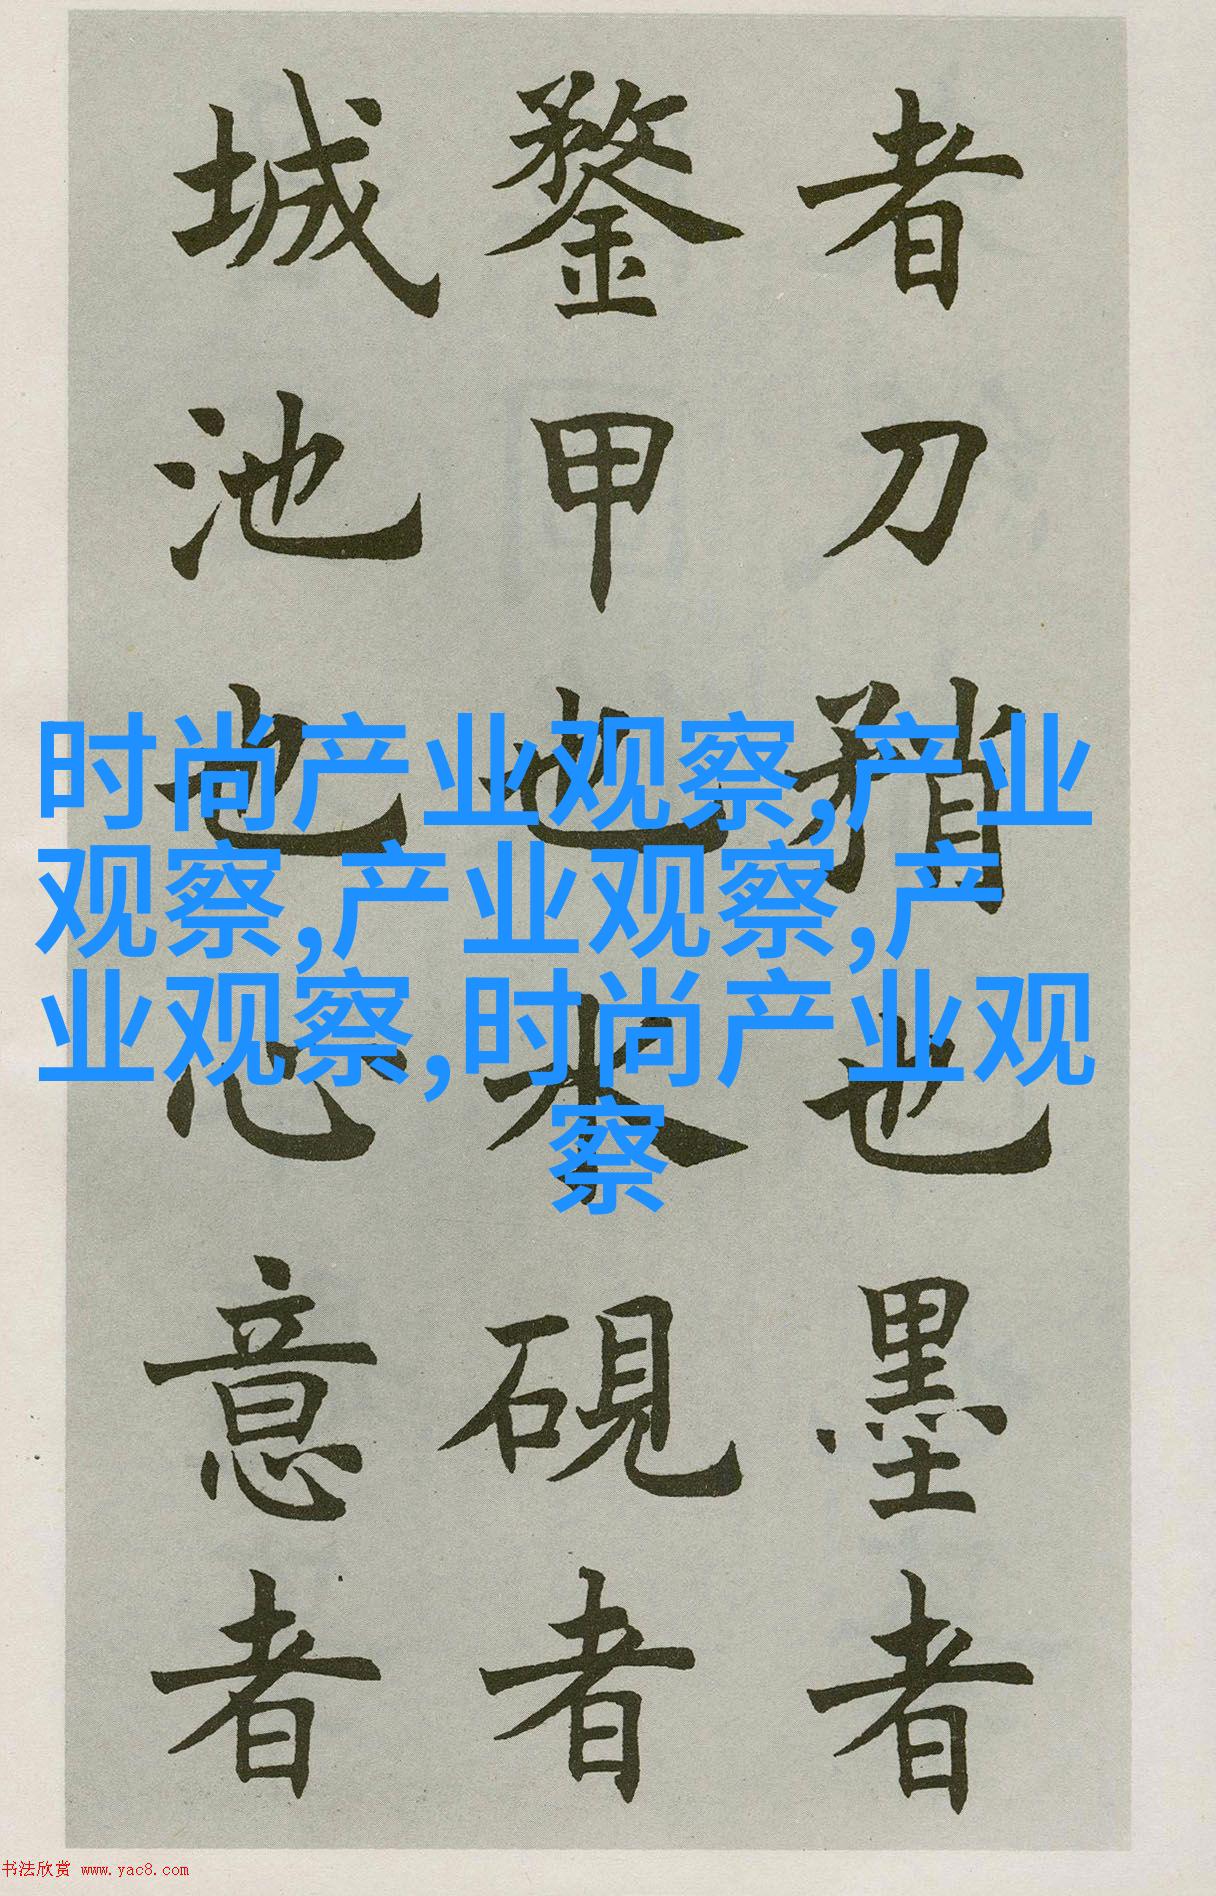 者刀矟也墨者
鍪甲也水硯者
城池也心意者
时尚产业观察,产业
观察,产业观察,产
业观察,时尚产业观
察
书法欣赏 www.yac8.com